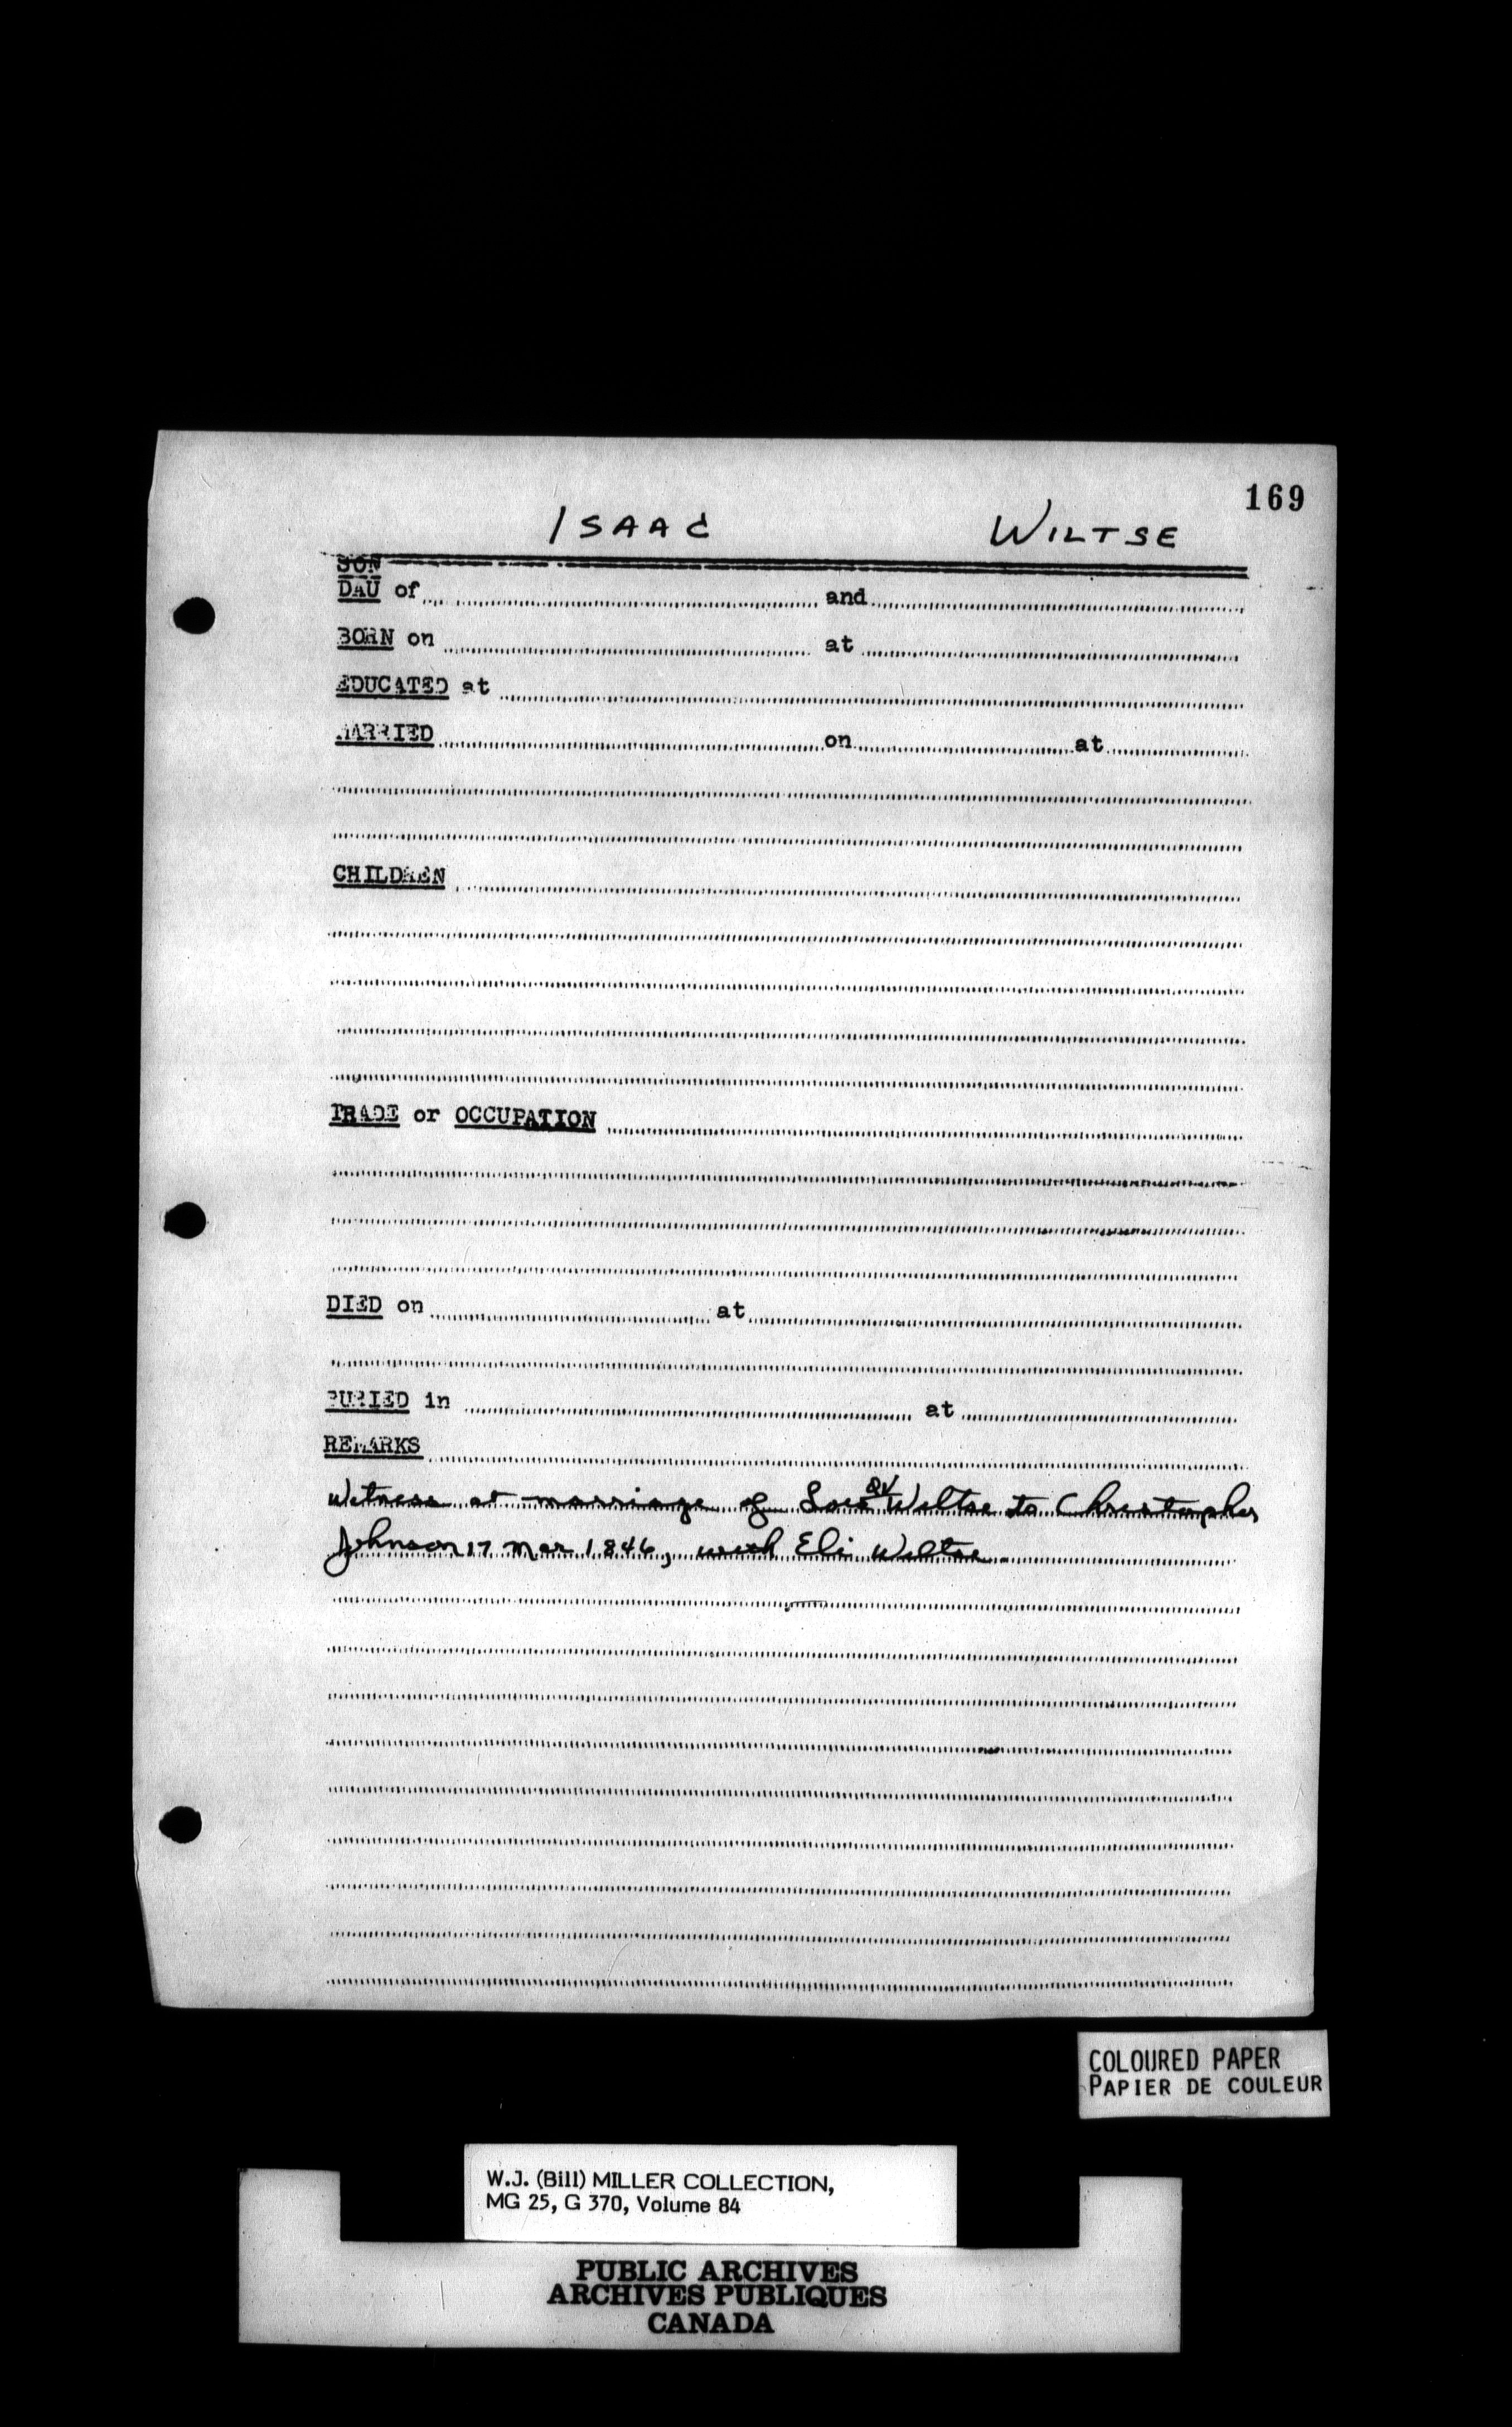 169
ISAAC WILTSE
SON
DAU of and
BORN on at
EDUCATED at
MARRIED on at
CHILDREN
TRADE or OCCUPATION
DIED on at
BURIED in at
REMARKS
QV
Witness at marriage of Lois Wiltse to Christopher
Johnson 17 Mar 1846, with Eli Wiltse
COLOURED PAPER
PAPIER DE COULEUR
W.J. (Bill) MILLER COLLECTION,
MG 25, G 370, Volume 84
PUBLIC ARCHIVES
ARCHIVES PUBLIQUES
CANADA